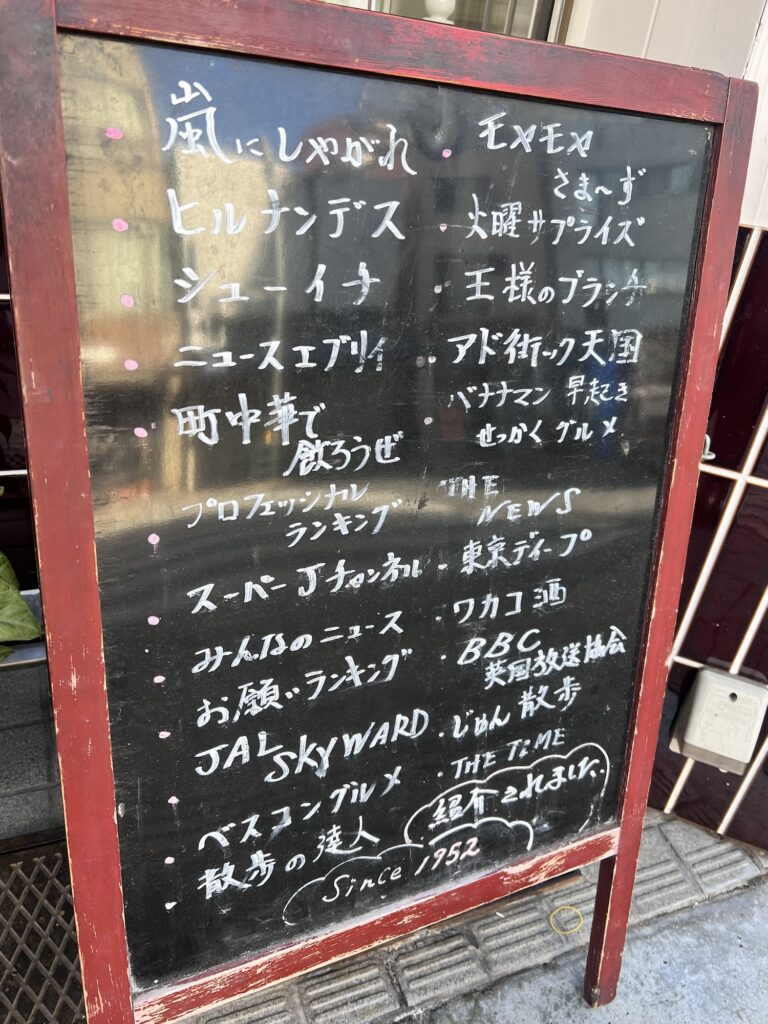 嵐にしやがれ
ヒルナンデス
シューイチ
ニュースエブリィ
町中華で
飲ろうぜ
プロフェッショナル
ランキング
スーパーJチャンネル
みんなのニュース
お願いランキング
JAL
SKYWARD
ベスコングルメ
散歩の達人
モヤモヤ
さま〜ず
火曜サプライズ
王様のブランチ
アド街ック天国
バナナマン 早起き
せっかくグルメ
THE
NEWS
東京ディープ
ワカコ酒
BBC
英国放送協会
じゅん散歩
THE TIME
紹介されました。
Since 1952